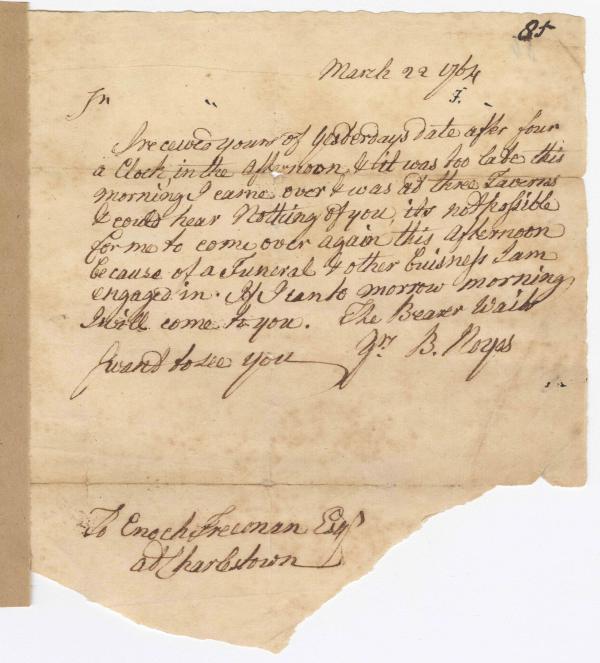 85
March 22 1764
Sr
I received yours of Yesterdays date after four
a Clock in the afternoon & it was too late this
morning I came over & was at three Taverns
& could hear Nothing of you, its not Possible
for me to come over again this afternoon
because of a Funeral & other buisness I am
engaged in. If I can to morrow morning
I will come to you. The Bearer Waits
I want to see you Yrs B.
To Enoch Freeman Esqr
at Charlestown